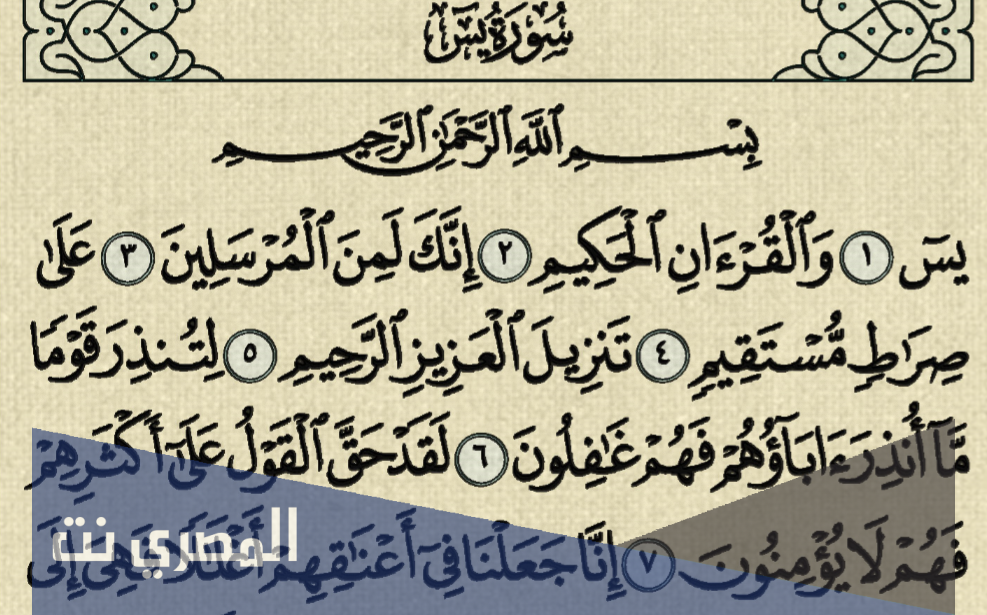 سُورَةُ يسٓ
بِسْمِ ٱللَّهِ ٱلرَّحْمَٰنِ ٱلرَّحِيمِ
يسٓ ١ وَٱلْقُرْءَانِ ٱلْحَكِيمِ ٢ إِنَّكَ لَمِنَ ٱلْمُرْسَلِينَ ٣ عَلَىٰ
صِرَٰطٍ مُّسْتَقِيمٍ ٤ تَنزِيلَ ٱلْعَزِيزِ ٱلرَّحِيمِ ٥ لِتُنذِرَ قَوْمًا
مَّآ أُنذِرَ ءَابَآؤُهُمْ فَهُمْ غَٰفِلُونَ ٦ لَقَدْ حَقَّ ٱلْقَوْلُ عَلَىٰٓ أَكْثَرِهِمْ
فَهُمْ لَا يُؤْمِنُونَ ٧ إِنَّا جَعَلْنَا فِىٓ أَعْنَٰقِهِمْ أَغْلَٰلًا فَهِىَ إِلَى
المصري نت